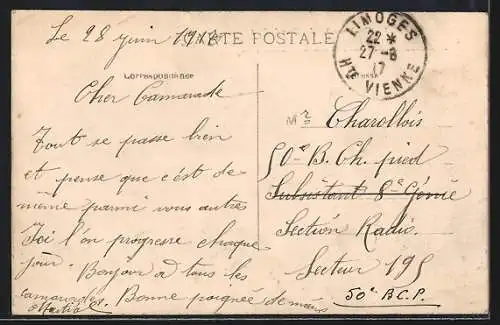 Le 28 juin 1917
CARTE POSTALE
Correspondance
LIMOGES
22 *
27-8
17
HTE VIENNE
Cher Camarade
Tout se passe bien
et pense que c'ést de
même parmi vous autres
Ici l'on progresse chaque
jour. Bonjour à tous les
camarades. Bonne poignée de mains
Martial
Mr Charollois
50e B. Ch. pied
Subsistant 8e Génie
Section Radio
Secteur 195
50e B.C.P.